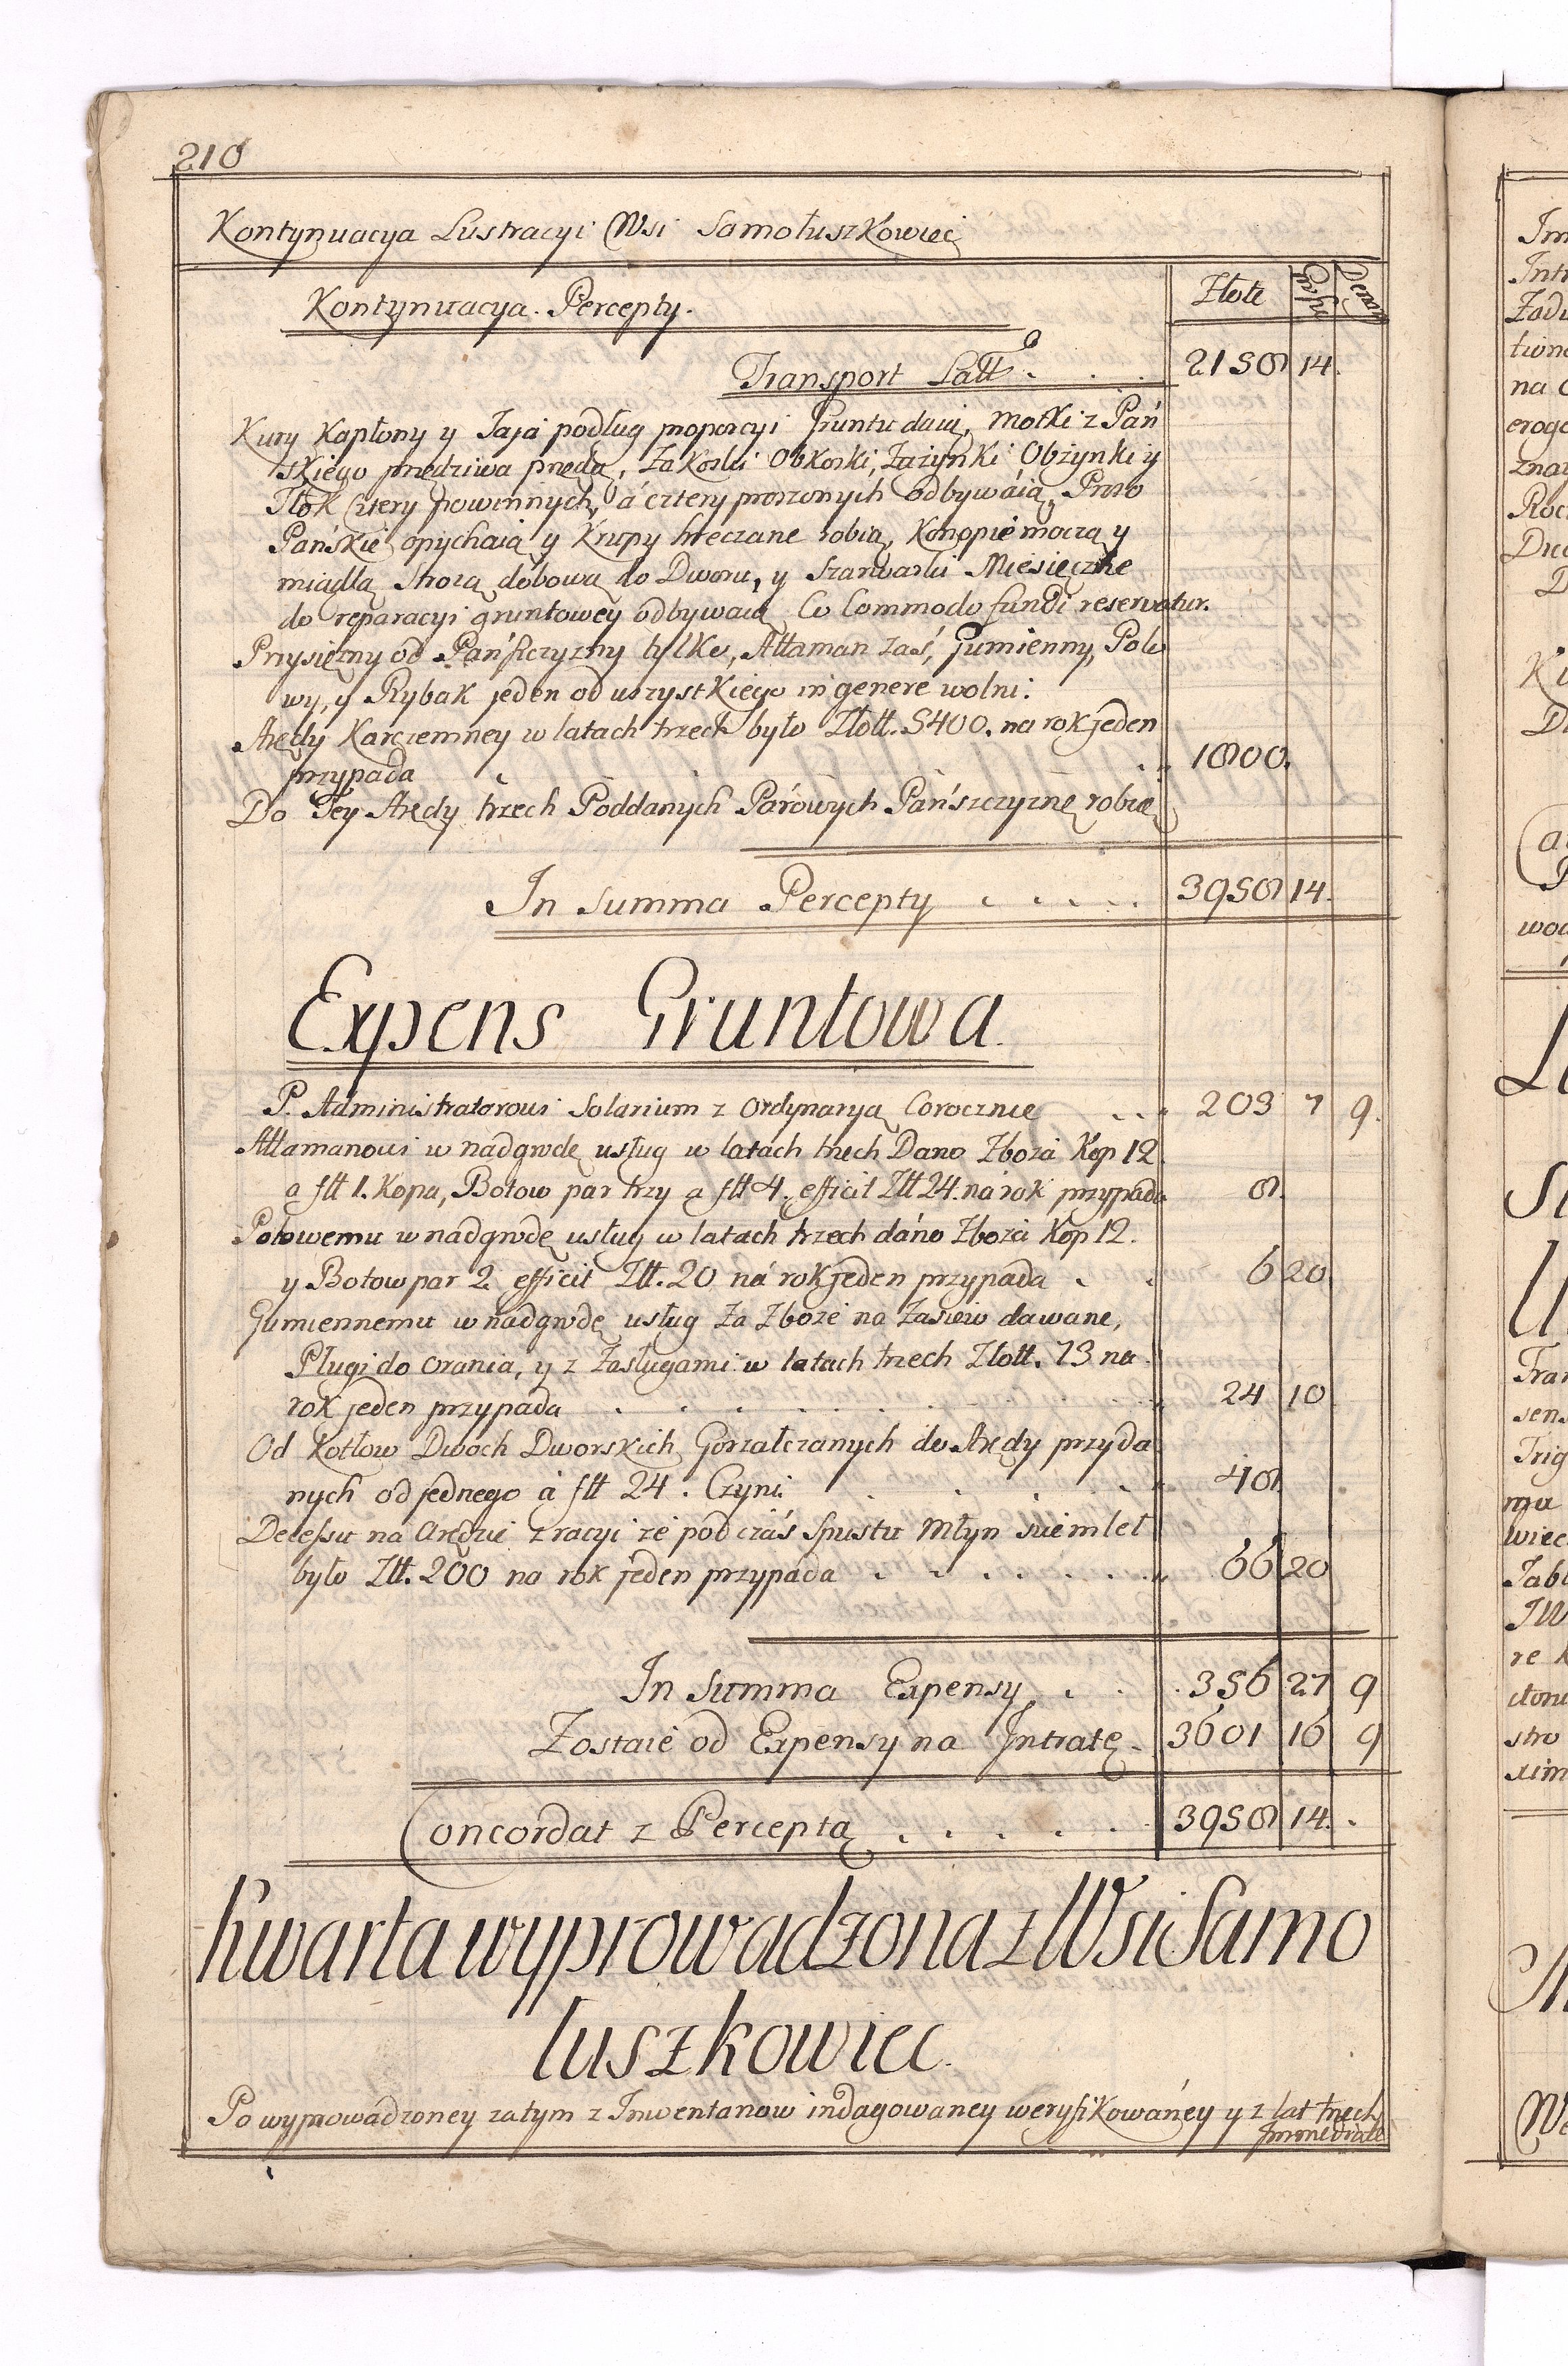 210
Kontynuacya Lustracyi Wsi Samołuszkowiec
Kontynuacya Percepty. Złote Grosze Denar
Transport Latt 2158 14.
Kury Kapłony y Jaja podług proporcyi Gruntu daią, Motki z Pań
skiego przędziwa przędą, Zakoski Obkoski, Zażynki Obżynki y
Tłok Cztery powinnych, á cztery proszonych odbywáią, Proso
Pańskie opychaią y Krupy hreczane robią, Konopie moczą y
miądlą, Strożą dobową do Dworu, y Szarwarki Miesięczne
do reparacyi gruntowey odbywaią Co Commodo fundi reservatur.
Przysięzny od Pańszczyzny tylko, Attaman zaś, Gumienny, Polo
wy, y Rybak jeden od wszystkiego in genere wolni.
Arędy Karczemney w latach trzech było Złott. 5400. na rok jeden
przypada 1800.
Do Tey Arędy trzech Poddanych Parowych Pańszczyznę robią
In Summa Percepty 3958 14.
Expens Gruntowa.
P. Administratorowi Solarium z Ordynaryą Corocznie 203 7 9.
Attamanowi w nadgrodę usług w latach trzech Dano Zboza Kop 12.
a fltt 1. Kopa, Botow par trzy a fltt 4. efficit Zltt 24. ná rok przypada 8.
Polowemu w nadgrodę usług w latach trzech dáno Zboża Kop 12.
y Botow par 2 efficit Zltt. 20 ná rok jeden przypada 6 20
Gumiennemu w nadgrodę usług Za Zboże na Zasiew dawane,
Pługi do orania, y z Zasługami w latach trzech Złott. 73 na
rok jeden przypada 24 10
Od Kotłow Dwoch Dworskich Gorzałczanych do Arędy przyda
nych od jednego á fltt 24. Czyni 48
Decessu na Arędzie z racyi że podczás Spustu Młyn nie mleł
było Zltt. 200 na rok jeden przypada 66 20
In Summa Expensy 356 27 9
Zostaie od Expensy na Intratę 3601 16 9
Concordat z Perceptą 3958 14.
Kwarta wyprowadzona z Wsi Samo
łuszkowiec.
Po wyprowadzoney zatym z Inwentarzow indagowaney weryfikowáney y z lat trzech
immediate